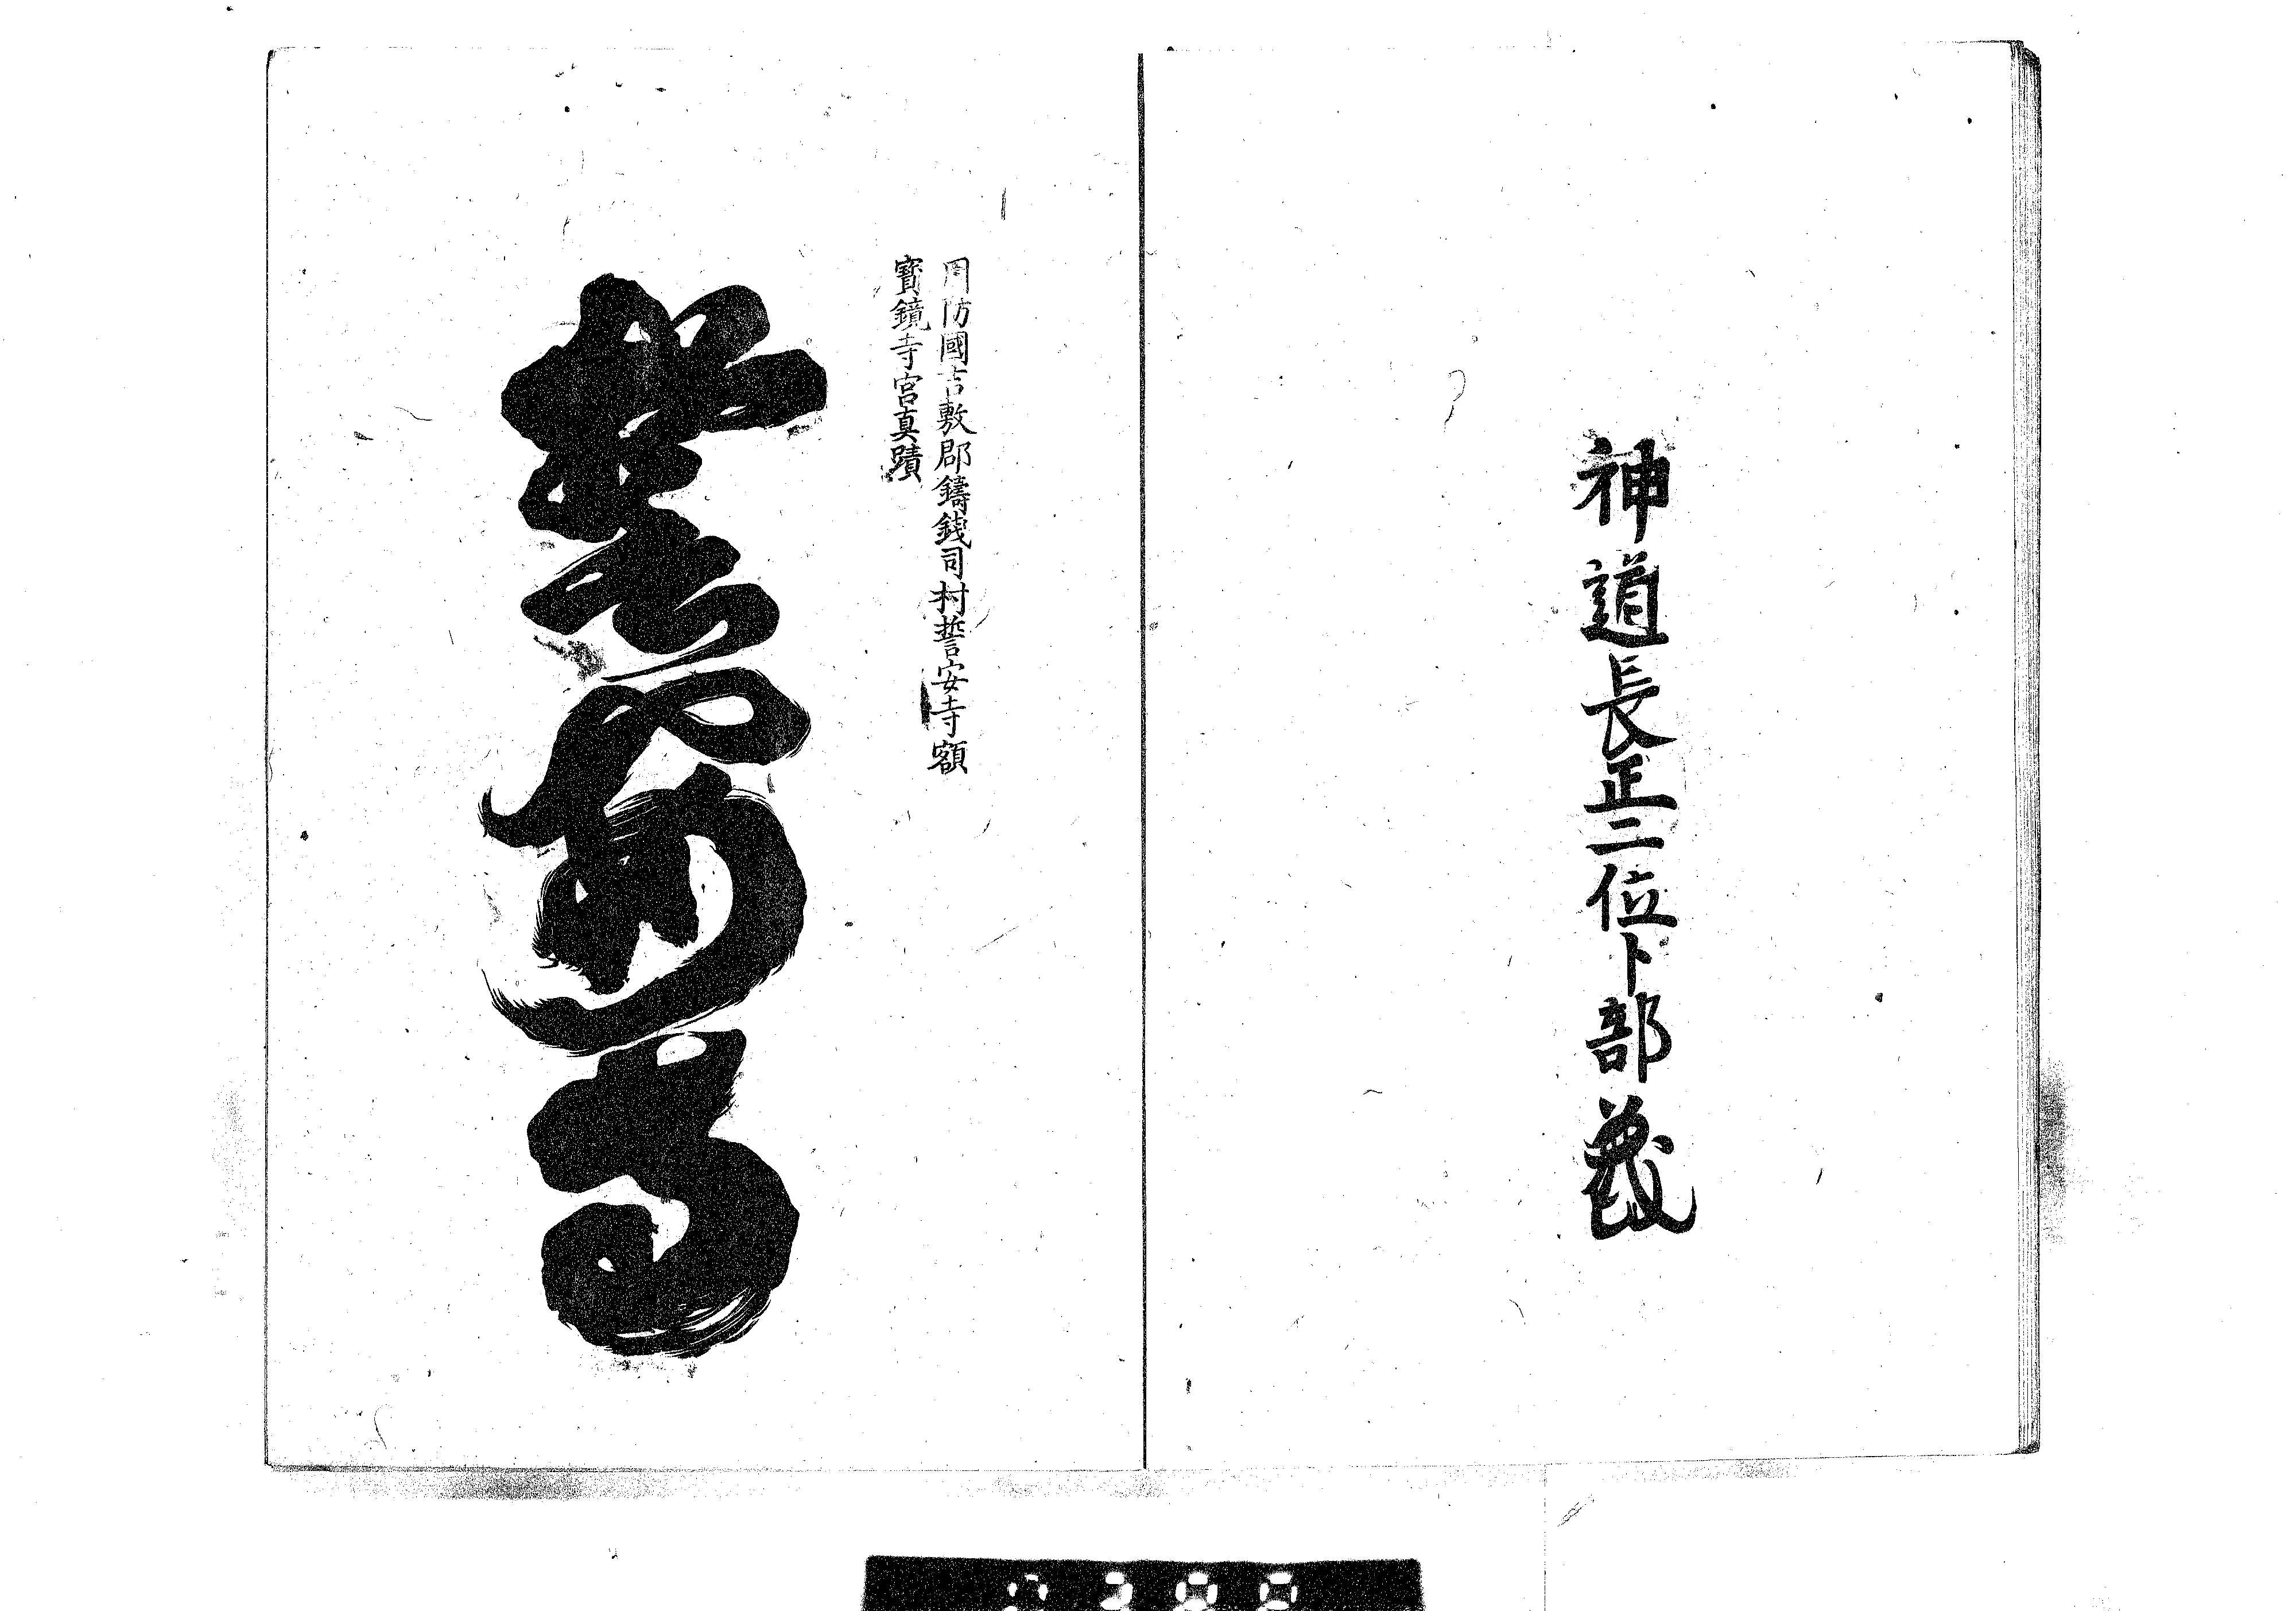 神道長正二位卜部
周防國吉敷郡鑄銭司村誓安寺額
寶鏡寺宮真蹟
誓安寺